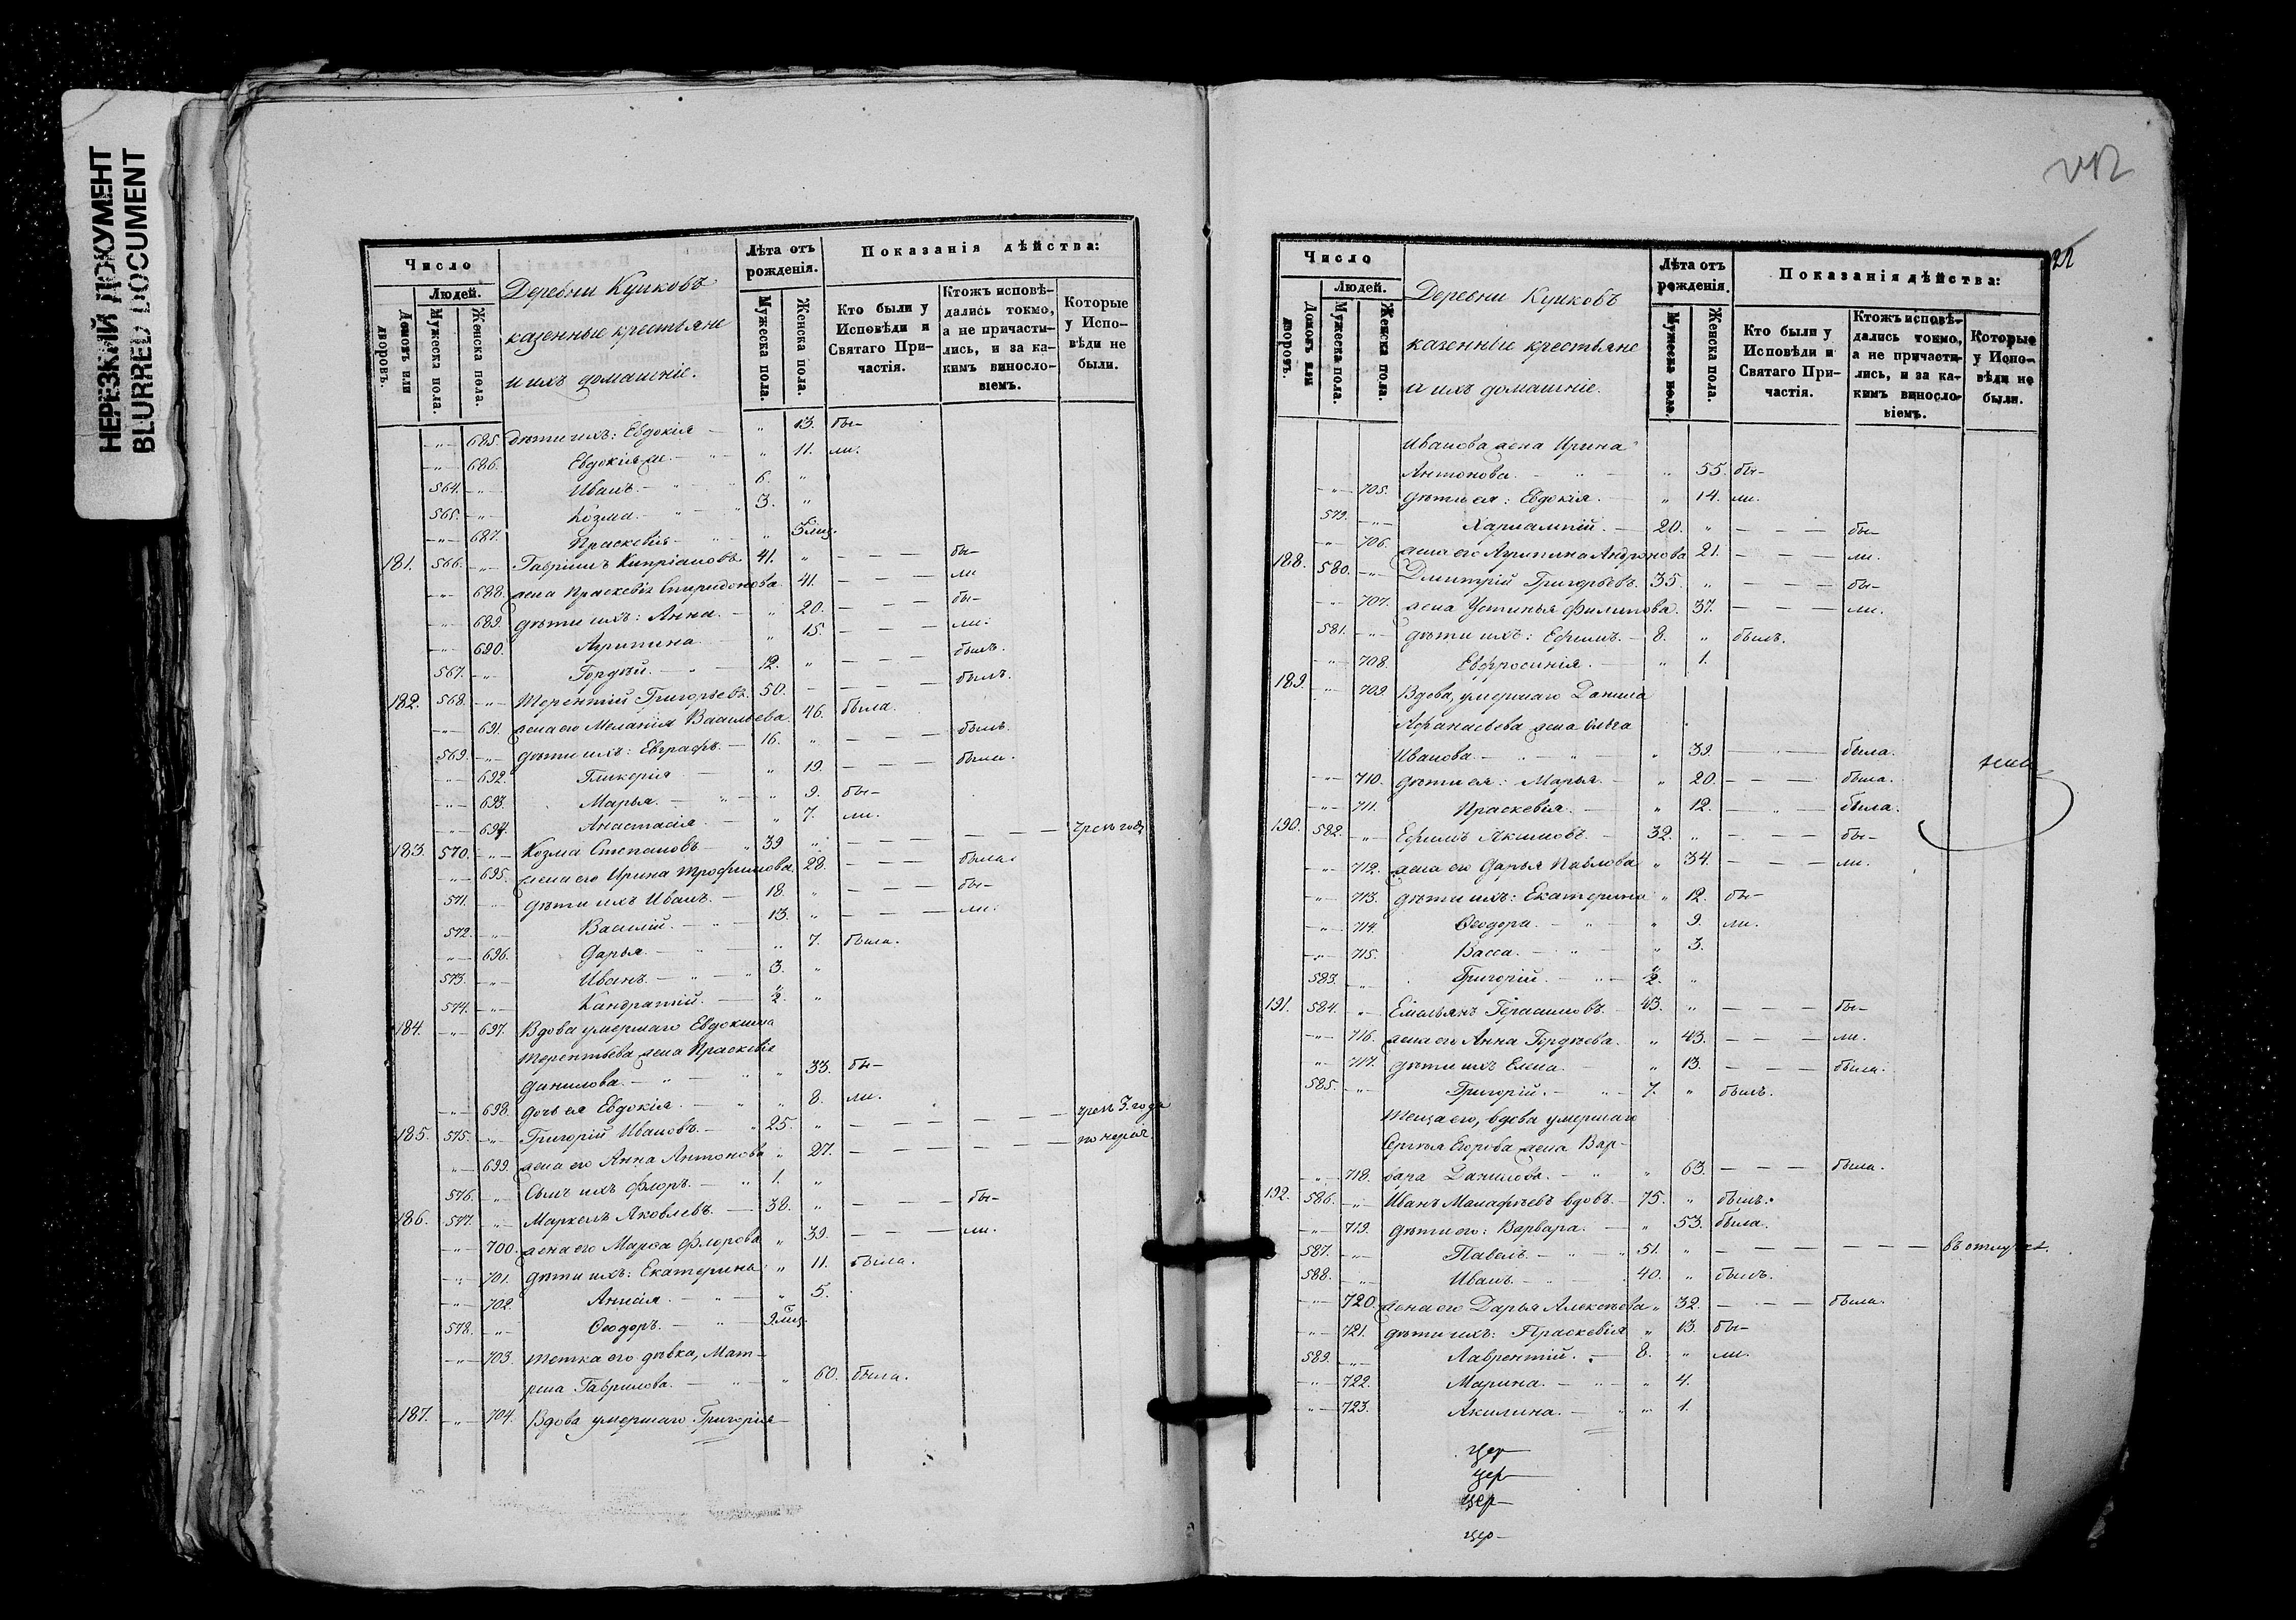 НЕРЕЗКИЙ ДОКУМЕНТ
BLURRED DOCUMENT
Число
Людей.
Домовъ или дворовъ.
Мужеска пола.
Женска пола.
Деревни Кушковъ
казенные крестьяне
и ихъ домашніе.
Лѣта отъ рожденія.
Мужеска пола.
Женска пола.
Показанія дѣйства:
Кто были у Исповѣди и Святаго Причастія.
Ктожъ исповѣдались токмо, а не причастились, и за какимъ винословіемъ.
Которые у Исповѣди не были.
-„- 685. дѣти ихъ: Евдокія — „ 13. бы-
-„- 686. Евдокія-же — „ 11. ли.
564. -„- Иванъ — 6. „
565. -„- Козма — 3. „
-„- 687. Праскевія — „ 5 мц.
181. 566. -„- Гавріилъ Кипріановъ. 41. „ — — — бы-
-„- 688. жена Праскевія Спиридонова 41. — — — ли
-„- 689. дѣти ихъ: Анна. — „ 20. — — — бы-
-„- 690. Агрипина „ 15. — — — ли.
567. -„- Гордѣй. — 12. „ — — — былъ.
182. 568. -„- Терентій Григорьевъ. 50. — — — — былъ.
-„- 691. жена его Меланія Васильева. 46. была.
569. -„- дѣти ихъ: Евграфъ. — 16. „ — — — былъ.
-„- 692. Гликерія — „ 19. — — — была.
-„- 693. Марья. — „ 9. бы-
-„- 694. Анастасія. — „ 7. ли.
183. 570. -„- Козма Степановъ — 39 „ — — — — —
-„- 695. жена его Ирина Трофимова. 28. — — — была.
571. -„- дѣти ихъ Иванъ. — 18. „ — — — бы-
572. -„- Василій. — 13. „ — — — ли.
-„- 696. Дарья. — „ 7. была.
573. -„- Иванъ. — „ 3. „
574. -„- Кандратій. — ½. „
184. -„- 697. Вдова умершаго Евдокима
Терентьева жена Праскевія
Данилова. — „ — „ 33. бы-
-„- 698. дочь ея Евдокія. — „ 8. ли.
185. 575. -„- Григорій Ивановъ. — 25. „ — — — — — чрезъ 3. года
-„- 699. жена его Анна Антонова „ 27. — — — — —
576. -„- Сынъ ихъ Флоръ. — „ 1. „
186. 577. -„- Маркелъ Яковлевъ. — 38. „ — — — бы-
-„- 700. жена его Марѳа Флорова „ 39. — — — ли.
-„- 701. дѣти ихъ: Екатерина „ 11. была.
-„- 702. Анисія. — „ — „ 5.
578. -„- Ѳеодоръ. — „ — 9 мц.
-„- 703. Тетка его дѣвка, Мат-
рена Гаврилова. — „ — „ 60. была.
187. -„- 704. Вдова умершаго Григорія-
22
Число
Людей.
Домовъ или дворовъ.
Мужеска пола.
Женска пола.
Деревни Кушковъ
казенніе крестьяне
и ихъ домашніе.
Лѣта отъ рожденія.
Мужеска пола.
Женска пола.
Показанія дѣйства:
Кто были у Исповѣди и Святаго Причастія.
Ктожъ исповѣдались токмо, а не причастились, и за какимъ винословіемъ.
Которые у Исповѣди не были.
Иванова жена Ирина
Антонова. — „ — „ 55. бы-
-„- 705. дѣти ея: Евдокія. — „ 14. ли.
579. -„- Харлампій. — 20. „ — — — бы-
-„- 706. жена его Агрипина Андронова 21. — — — ли.
188. 580. -„- Дмитрій Григорьевъ. 35. „ — — — бы-
-„- 707. жена Устинья Филипова. 37. — — — ли.
581. -„- дѣти ихъ: Ефимъ. — 8. „ былъ.
-„- 708. Евфросинія. — „ 1.
189. -„- 709. Вдова, умершаго Данила
Афанасьева жена Ольга
Иванова. — „ — „ 39. — — была.
-„- 710. дѣти ея: Марья. — „ 20. — — — была.
-„- 711. Праскевія. — „ 12. — — — была.
190. 582. „ Ефимъ Акимовъ. — 32. „ — — — бы-
-„- 712. жена его Дарья Павлова „ 34. — — — ли.
-„- 713. дѣти ихъ: Екатерина „ 12. бы-
-„- 714. Ѳеодора. — „ — „ 9. ли.
-„- 715. Васса. — „ — „ 3.
583. -„- Григорій. — „ — ½. „
191. 584. „ Емельянъ Герасимовъ. 43. „ — — — бы-
-„- 716. жена его Анна Гордѣева. „ 43. — — — ли.
-„- 717. дѣти ихъ Елена. — „ 13. — — — была.
585. -„- Григорій. — „ — 7. „ былъ.
Теща его, вдова умершаго
Сергѣя Егорова жена Вар-
-„- 718. вара Данилова. — „ „ 63. — — — была.
192. 586. -„- Иванъ Малафѣевъ вдовъ. 75. „ былъ.
-„- 719. дѣти его: Варвара. — „ 53. была.
587. -„- Павелъ. — „ — 51. „ — — — — — — въ отлучкѣ.
588. -„- Иванъ. — 40. „ былъ.
-„- 720. жена его Дарья Алексѣева „ 32. — — — была.
-„- 721. дѣти ихъ: Праскевія „ 13. бы-
589. -„- Лаврентій. — 8. „ ли.
-„- 722. Марина. — „ — „ 4.
-„- 723. Акилина. — „ „ 1.